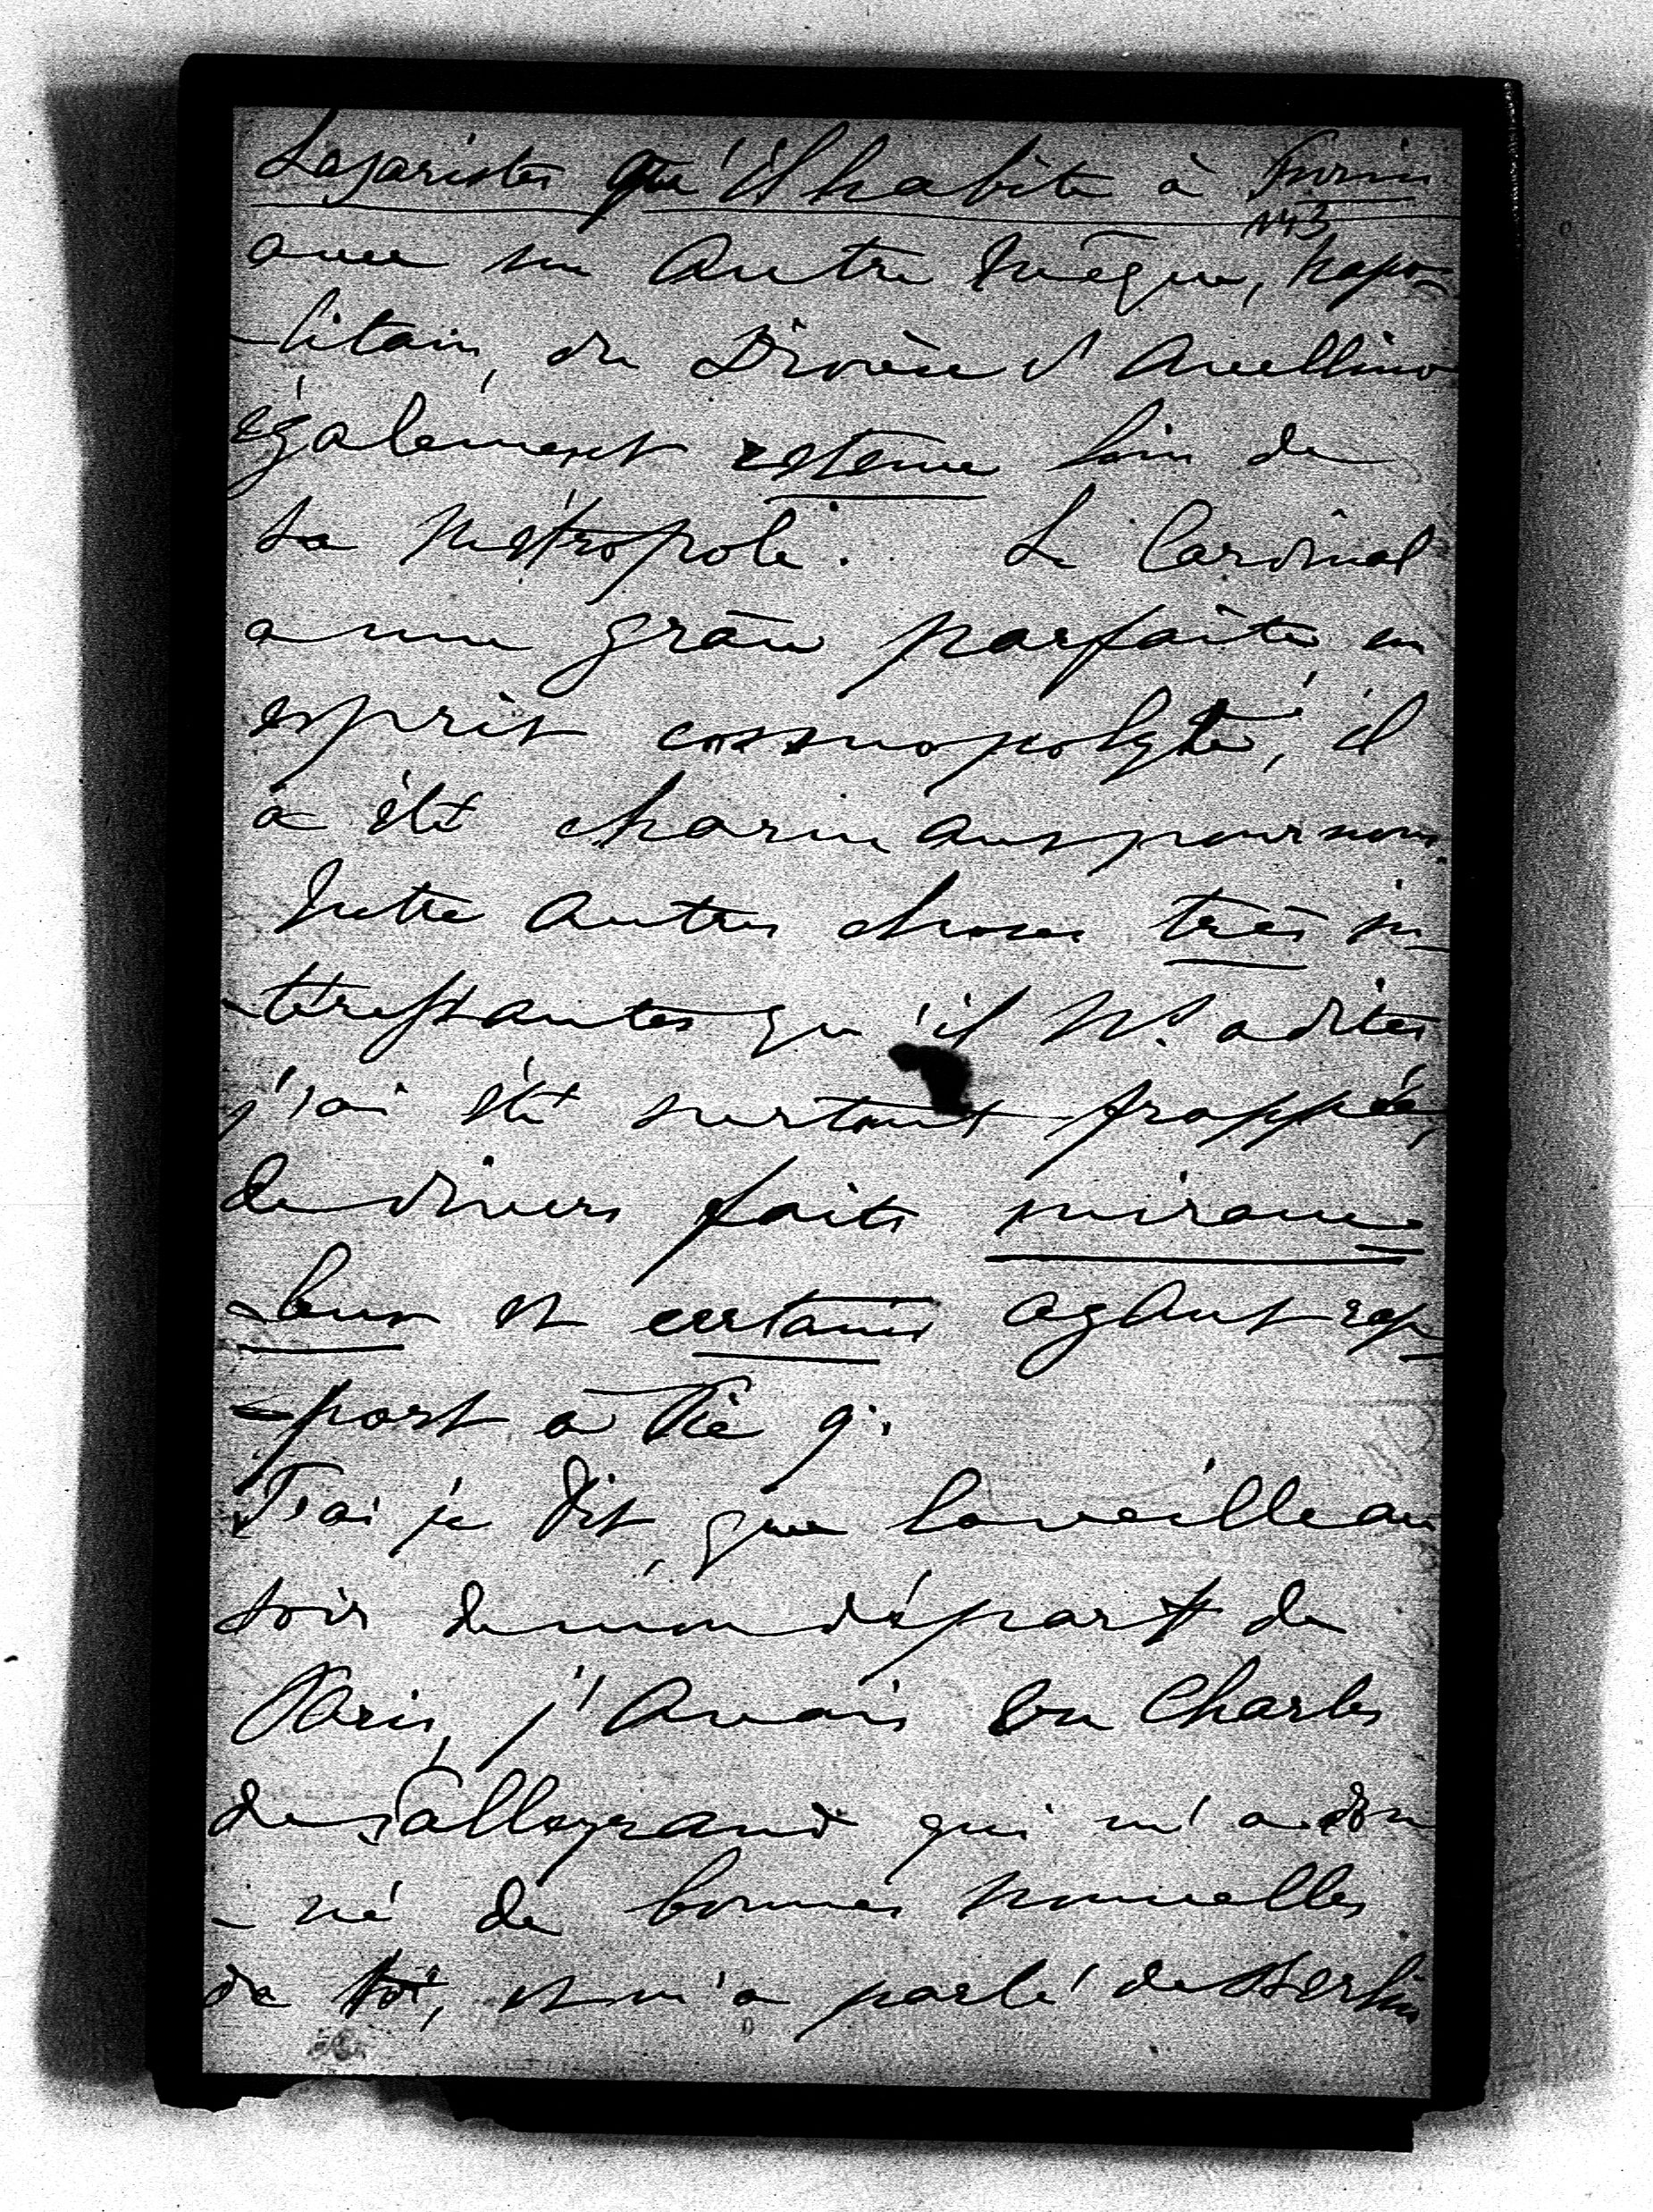 Lazaristes qu'il habite à Turin
143
avec un autre Evêque, napo-
-litain, du Diocèse d'Avellino
également retenu loin de
sa Métropole. Le Cardinal
a une grâce parfaite, un
esprit cosmopolyte, il
a été charmant pour nous.
Entre autres choses très in-
-téressantes qu'il Ns. a dites
j'ai été surtout frappée,
de divers faits miracu-
-leux et certains ayant rap-
-port à Pie 9.
T'ai je dit, que la veille au
soir de mon départ de
Paris, j'avais vu Charles
de Talleyrand qui m'a don
-né de bonnes nouvelles
de toi, et m'a parlé de Berlin